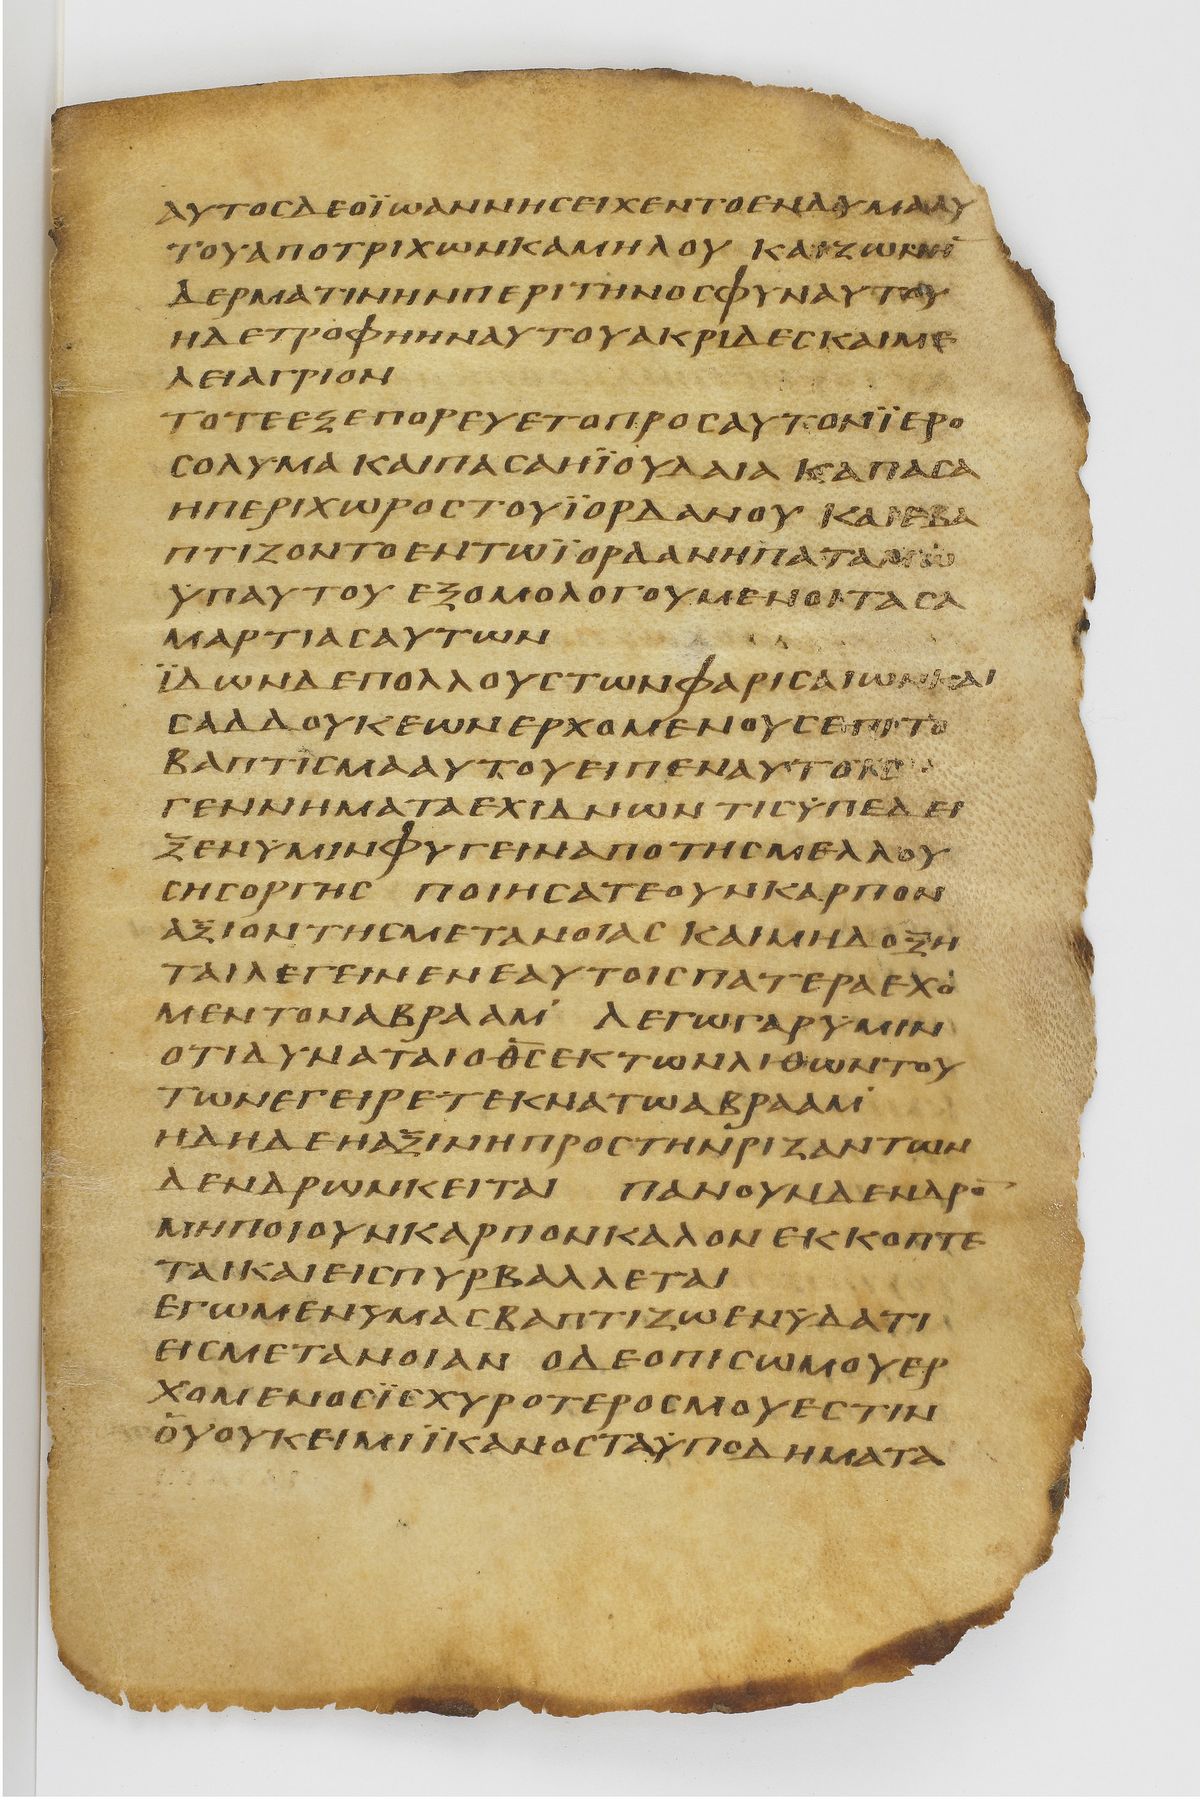 ΑΥΤΟCΔΕΟΪΩΑΝΝΗCΕΙΧΕΝΤΟΕΝΔΥΜΑΑΥ
ΤΟΥΑΠΟΤΡΙΧΩΝΚΑΜΗΛΟΥ ΚΑΙΖΩΝΗ̅
ΔΕΡΜΑΤΙΝΗΝΠΕΡΙΤΗΝΟCΦΥΝΑΥΤΟΥ
ΗΔΕΤΡΟΦΗΗΝΑΥΤΟΥΑΚΡΙΔΕCΚΑΙΜΕ
ΛΕΙΑΓΡΙΟΝ
ΤΟΤΕΕΞΕΠΟΡΕΥΕΤΟΠΡΟCΑΥΤΟΝΪΕΡΟ
CΟΛΥΜΑ ΚΑΙΠΑCΑΗΪΟΥΔΑΙΑ ΚΑΠΑCΑ
ΗΠΕΡΙΧΩΡΟCΤΟΥΪΟΡΔΑΝΟΥ ΚΑΙΕΒΑ
ΠΤΙΖΟΝΤΟΕΝΤΩΪΟΡΔΑΝΗΠΑΤΑΜΩ
ΫΠΑΥΤΟΥ ΕΞΟΜΟΛΟΓΟΥΜΕΝΟΙΤΑCΑ
ΜΑΡΤΙΑCΑΥΤΩΝ
ΪΔΩΝΔΕΠΟΛΛΟΥCΤΩΝΦΑΡΙCΑΙΩΝΚΑΙ
CΑΔΔΟΥΚΕΩΝΕΡΧΟΜΕΝΟΥCΕΠΙΤΟ
ΒΑΠΤΙCΜΑΑΥΤΟΥΕΙΠΕΝΑΥΤΟΙC
ΓΕΝΝΗΜΑΤΑΕΧΙΔΝΩΝΤΙCΫΠΕΔΕΙ
ΞΕΝΥΜΙΝΦΥΓΕΙΝΑΠΟΤΗCΜΕΛΛΟΥ
CΗCΟΡΓΗC ΠΟΙΗCΑΤΕΟΥΝΚΑΡΠΟΝ
ΑΞΙΟΝΤΗCΜΕΤΑΝΟΙΑC ΚΑΙΜΗΔΟΞΗ
ΤΑΙΛΕΓΕΙΝΕΝΕΑΥΤΟΙCΠΑΤΕΡΑΕΧΟ
ΜΕΝΤΟΝΑΒΡΑΑΜ' ΛΕΓΩΓΑΡΥΜΙΝ
ΟΤΙΔΥΝΑΤΑΙΟΘ̅C̅ΕΚΤΩΝΛΙΘΩΝΤΟΥ
ΤΩΝΕΓΕΙΡΕΤΕΚΝΑΤΩΑΒΡΑΑΜ'
ΗΔΗΔΕΗΑΞΙΝΗΠΡΟCΤΗΝΡΙΖΑΝΤΩΝ
ΔΕΝΔΡΩΝΚΕΙΤΑΙ ΠΑΝΟΥΝΔΕΝΔΡΟ̅
ΜΗΠΟΙΟΥΝΚΑΡΠΟΝΚΑΛΟΝΕΚΚΟΠΤΕ
ΤΑΙΚΑΙΕΙCΠΥΡΒΑΛΛΕΤΑΙ
ΕΓΩΜΕΝΥΜΑCΒΑΠΤΙΖΩΕΝΥΔΑΤΙ
ΕΙCΜΕΤΑΝΟΙΑΝ ΟΔΕΟΠΙCΩΜΟΥΕΡ
ΧΟΜΕΝΟCΪCΧΥΡΟΤΕΡΟCΜΟΥΕCΤΙΝ
ΟΥΟΥΚΕΙΜΙΪΚΑΝΟCΤΑΫΠΟΔΗΜΑΤΑ